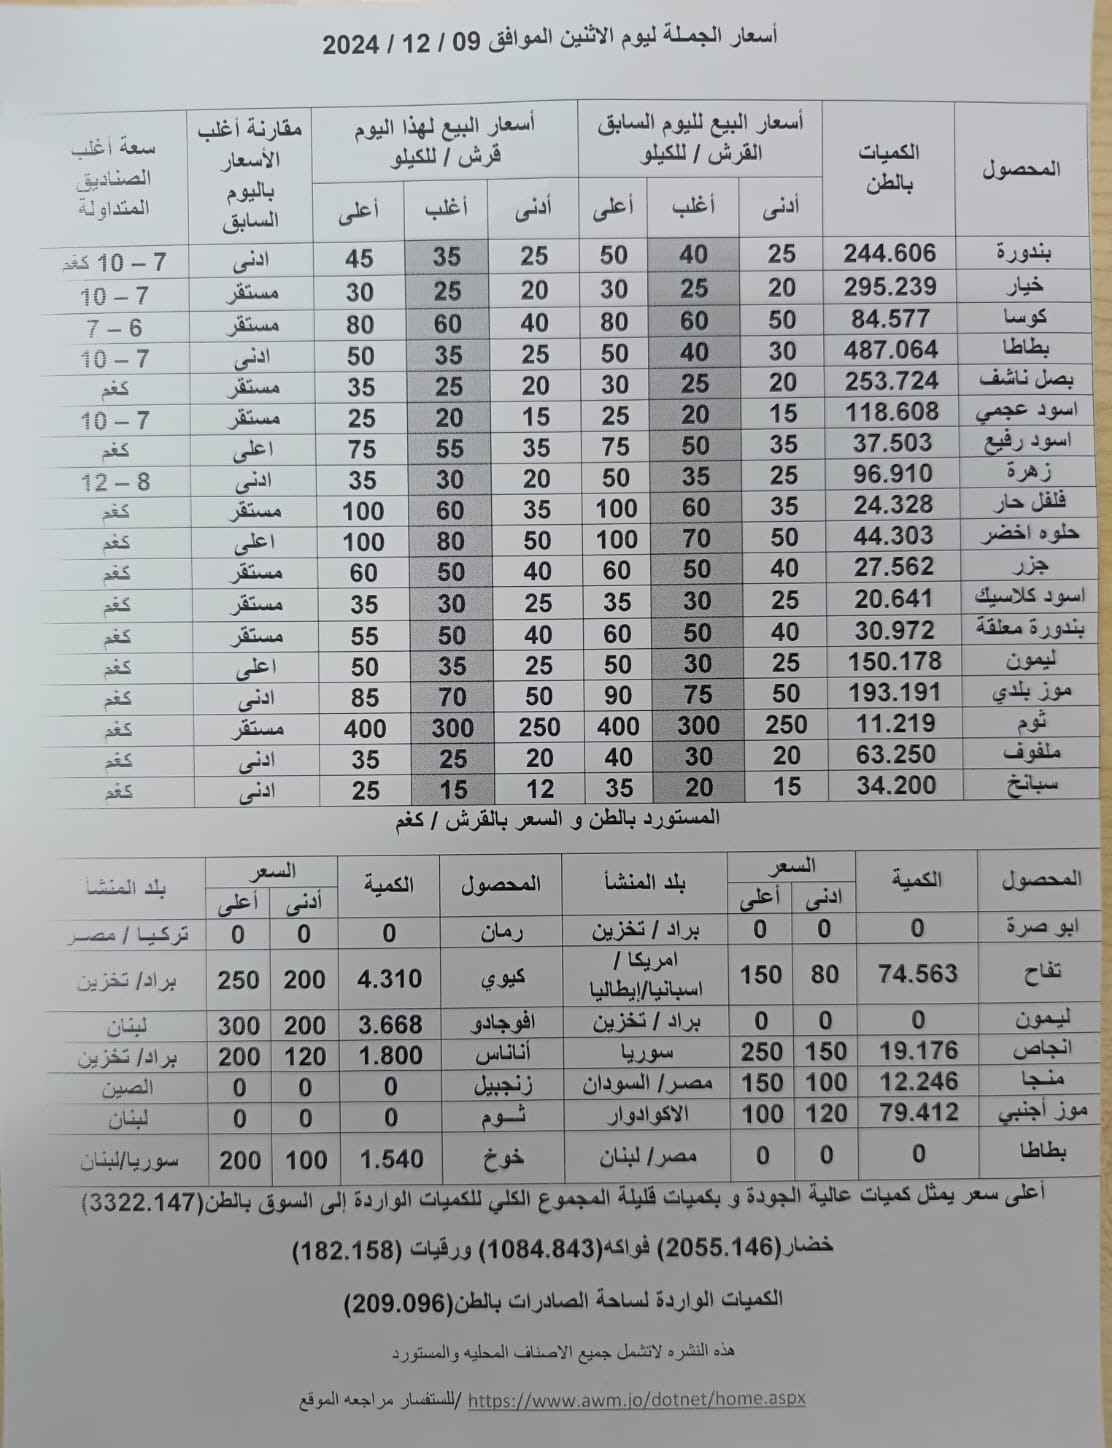 أسعار الجملة ليوم الاثنين الموافق 09 / 12 / 2024
المحصول الكميات بالطن أسعار البيع لليوم السابق القرش / للكيلو أسعار البيع لهذا اليوم قرش / للكيلو مقارنة أغلب الأسعار باليوم السابق سعة أغلب الصناديق المتداولة
أدنى أغلب أعلى أدنى أغلب أعلى
بندورة 244.606 25 40 50 25 35 45 ادنى 7 – 10 كغم
خيار 295.239 20 25 30 20 25 30 مستقر 7 – 10
كوسا 84.577 50 60 80 40 60 80 مستقر 6 – 7
بطاطا 487.064 30 40 50 25 35 50 ادنى 7 – 10
بصل ناشف 253.724 20 25 30 20 25 35 مستقر كغم
اسود عجمي 118.608 15 20 25 15 20 25 مستقر 7 – 10
اسود رفيع 37.503 35 50 75 35 55 75 اعلى كغم
زهرة 96.910 25 35 50 20 30 35 ادنى 8 – 12
فلفل حار 24.328 35 60 100 35 60 100 مستقر كغم
حلوه اخضر 44.303 50 70 100 50 80 100 اعلى كغم
جزر 27.562 40 50 60 40 50 60 مستقر كغم
اسود كلاسيك 20.641 25 30 35 25 30 35 مستقر كغم
بندورة معلقة 30.972 40 50 60 40 50 55 مستقر كغم
ليمون 150.178 25 30 50 25 35 50 اعلى كغم
موز بلدي 193.191 50 75 90 50 70 85 ادنى كغم
ثوم 11.219 250 300 400 250 300 400 مستقر كغم
ملفوف 63.250 20 30 40 20 25 35 ادنى كغم
سبانخ 34.200 15 20 35 12 15 25 ادنى كغم
المستورد بالطن و السعر بالقرش / كغم
المحصول الكمية السعر بلد المنشأ المحصول الكمية السعر بلد المنشأ
ادنى أعلى أدنى أعلى
ابو صرة 0 0 0 براد / تخزين رمان 0 0 0 تركيا / مصر
تفاح 74.563 80 150 امريكا / اسبانيا/إيطاليا كيوي 4.310 200 250 براد/ تخزين
ليمون 0 0 0 براد / تخزين افوجادو 3.668 200 300 لبنان
انجاص 19.176 150 250 سوريا أناناس 1.800 120 200 براد/ تخزين
منجا 12.246 100 150 مصر/ السودان زنجبيل 0 0 0 الصين
موز أجنبي 79.412 120 100 الاكوادوار ثوم 0 0 0 لبنان
بطاطا 0 0 0 مصر/ لبنان خوخ 1.540 100 200 سوريا/لبنان
أعلى سعر يمثل كميات عالية الجودة و بكميات قليلة المجموع الكلي للكميات الواردة إلى السوق بالطن(3322.147)
خضار(2055.146) فواكه(1084.843) ورقيات (182.158)
الكميات الواردة لساحة الصادرات بالطن(209.096)
هذه النشره لاتشمل جميع الاصناف المحليه والمستورد
للستفسار مراجعه الموقع/ https://www.awm.jo/dotnet/home.aspx